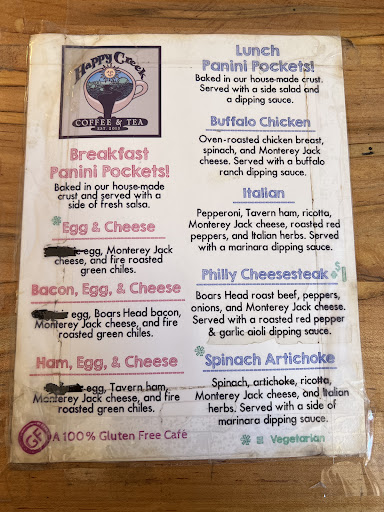 Happy Creek
COFFEE & TEA
EST. 2005
Breakfast
Panini Pockets!
Baked in our house-made
crust and served with a
side of fresh salsa.
Egg & Cheese
egg, Monterey Jack
cheese, and fire roasted
green chiles.
Bacon, Egg, & Cheese
egg, Boars Head bacon,
Monterey Jack cheese, and fire
roasted green chiles.
Ham, Egg, & Cheese
egg, Tavern ham,
Monterey Jack cheese, and fire
roasted green chiles.
GF
A 100% Gluten Free Café
Lunch
Panini Pockets!
Baked in our house-made crust.
Served with a side salad and
a dipping sauce.
Buffalo Chicken
Oven-roasted chicken breast,
spinach, and Monterey Jack
cheese. Served with a buffalo
ranch dipping sauce.
Italian
Pepperoni, Tavern ham, ricotta,
Monterey Jack cheese, roasted red
peppers, and Italian herbs. Served
with a marinara dipping sauce.
Philly Cheesesteak
Boars Head roast beef, peppers,
onions, and Monterey Jack cheese.
Served with a roasted red pepper
& garlic aioli dipping sauce.
Spinach Artichoke
Spinach, artichoke, ricotta,
Monterey Jack cheese, and Italian
herbs. Served with a side of
marinara dipping sauce.
= Vegetarian